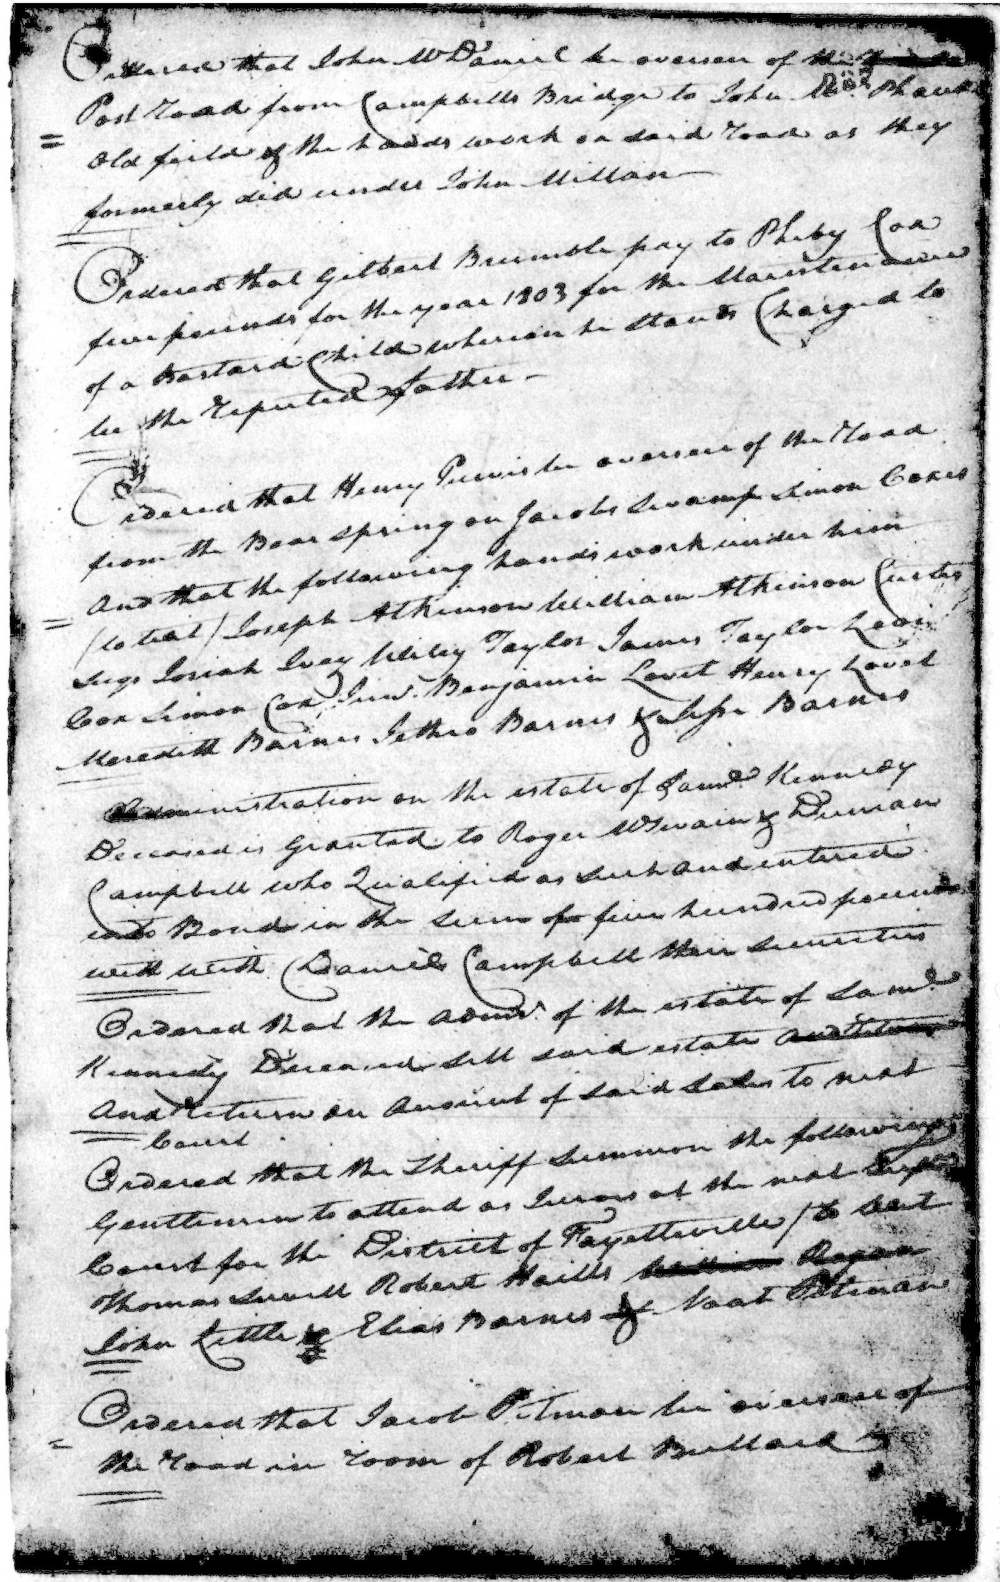 Ordered that John McDaniel be overseer of the
Post Road from Campbells Bridge to John Mc Phauls
old field & the hands work on said Road as they
formerly did under John Millan
Ordered that Gilbert Brumble pay to Pheby Cox
five pounds for the year 1803 for the Maintenance
of a Bastard Child wherein he stands Charged to
be the Reputed father
Ordered that Henry Purvis be overseer of the Road
from the Bear Spring on Jacobs Swamp Simon Coxes
And that the following hands work under him
(to wit) Joseph Atkinson William Atkinson Curtis
Sugs Josiah Ivey Wiley Taylor James Taylor Levi
Cox Simon Cox Junr. Benjamin Lovet Henry Lovet
Meredith Barnes Jethro Barnes & Jesse Barnes
Administration on the estate of Saml. Kennedy
Deceased is Granted to Roger McSwain & Duncan
Campbell who Qualified as such and entered
into Bond in the sum of five hundred pounds
with with Daniel Campbell their securities
Ordered that the Admr. of the estate of Saml.
Kennedy Deceased sell said estate
And Return an Account of said Sales to next
Court
Ordered that the Sheriff summon the following
Gentlemen to attend as Jurors at the next Supr
Court for the District of Fayetteville (to wit
Thomas Sewell Robert Haills William Rogan
John Little & Elias Barnes & Noat Pitman
Ordered that Jacob Pitman be overseer of
the Road in room of Robert Bullard